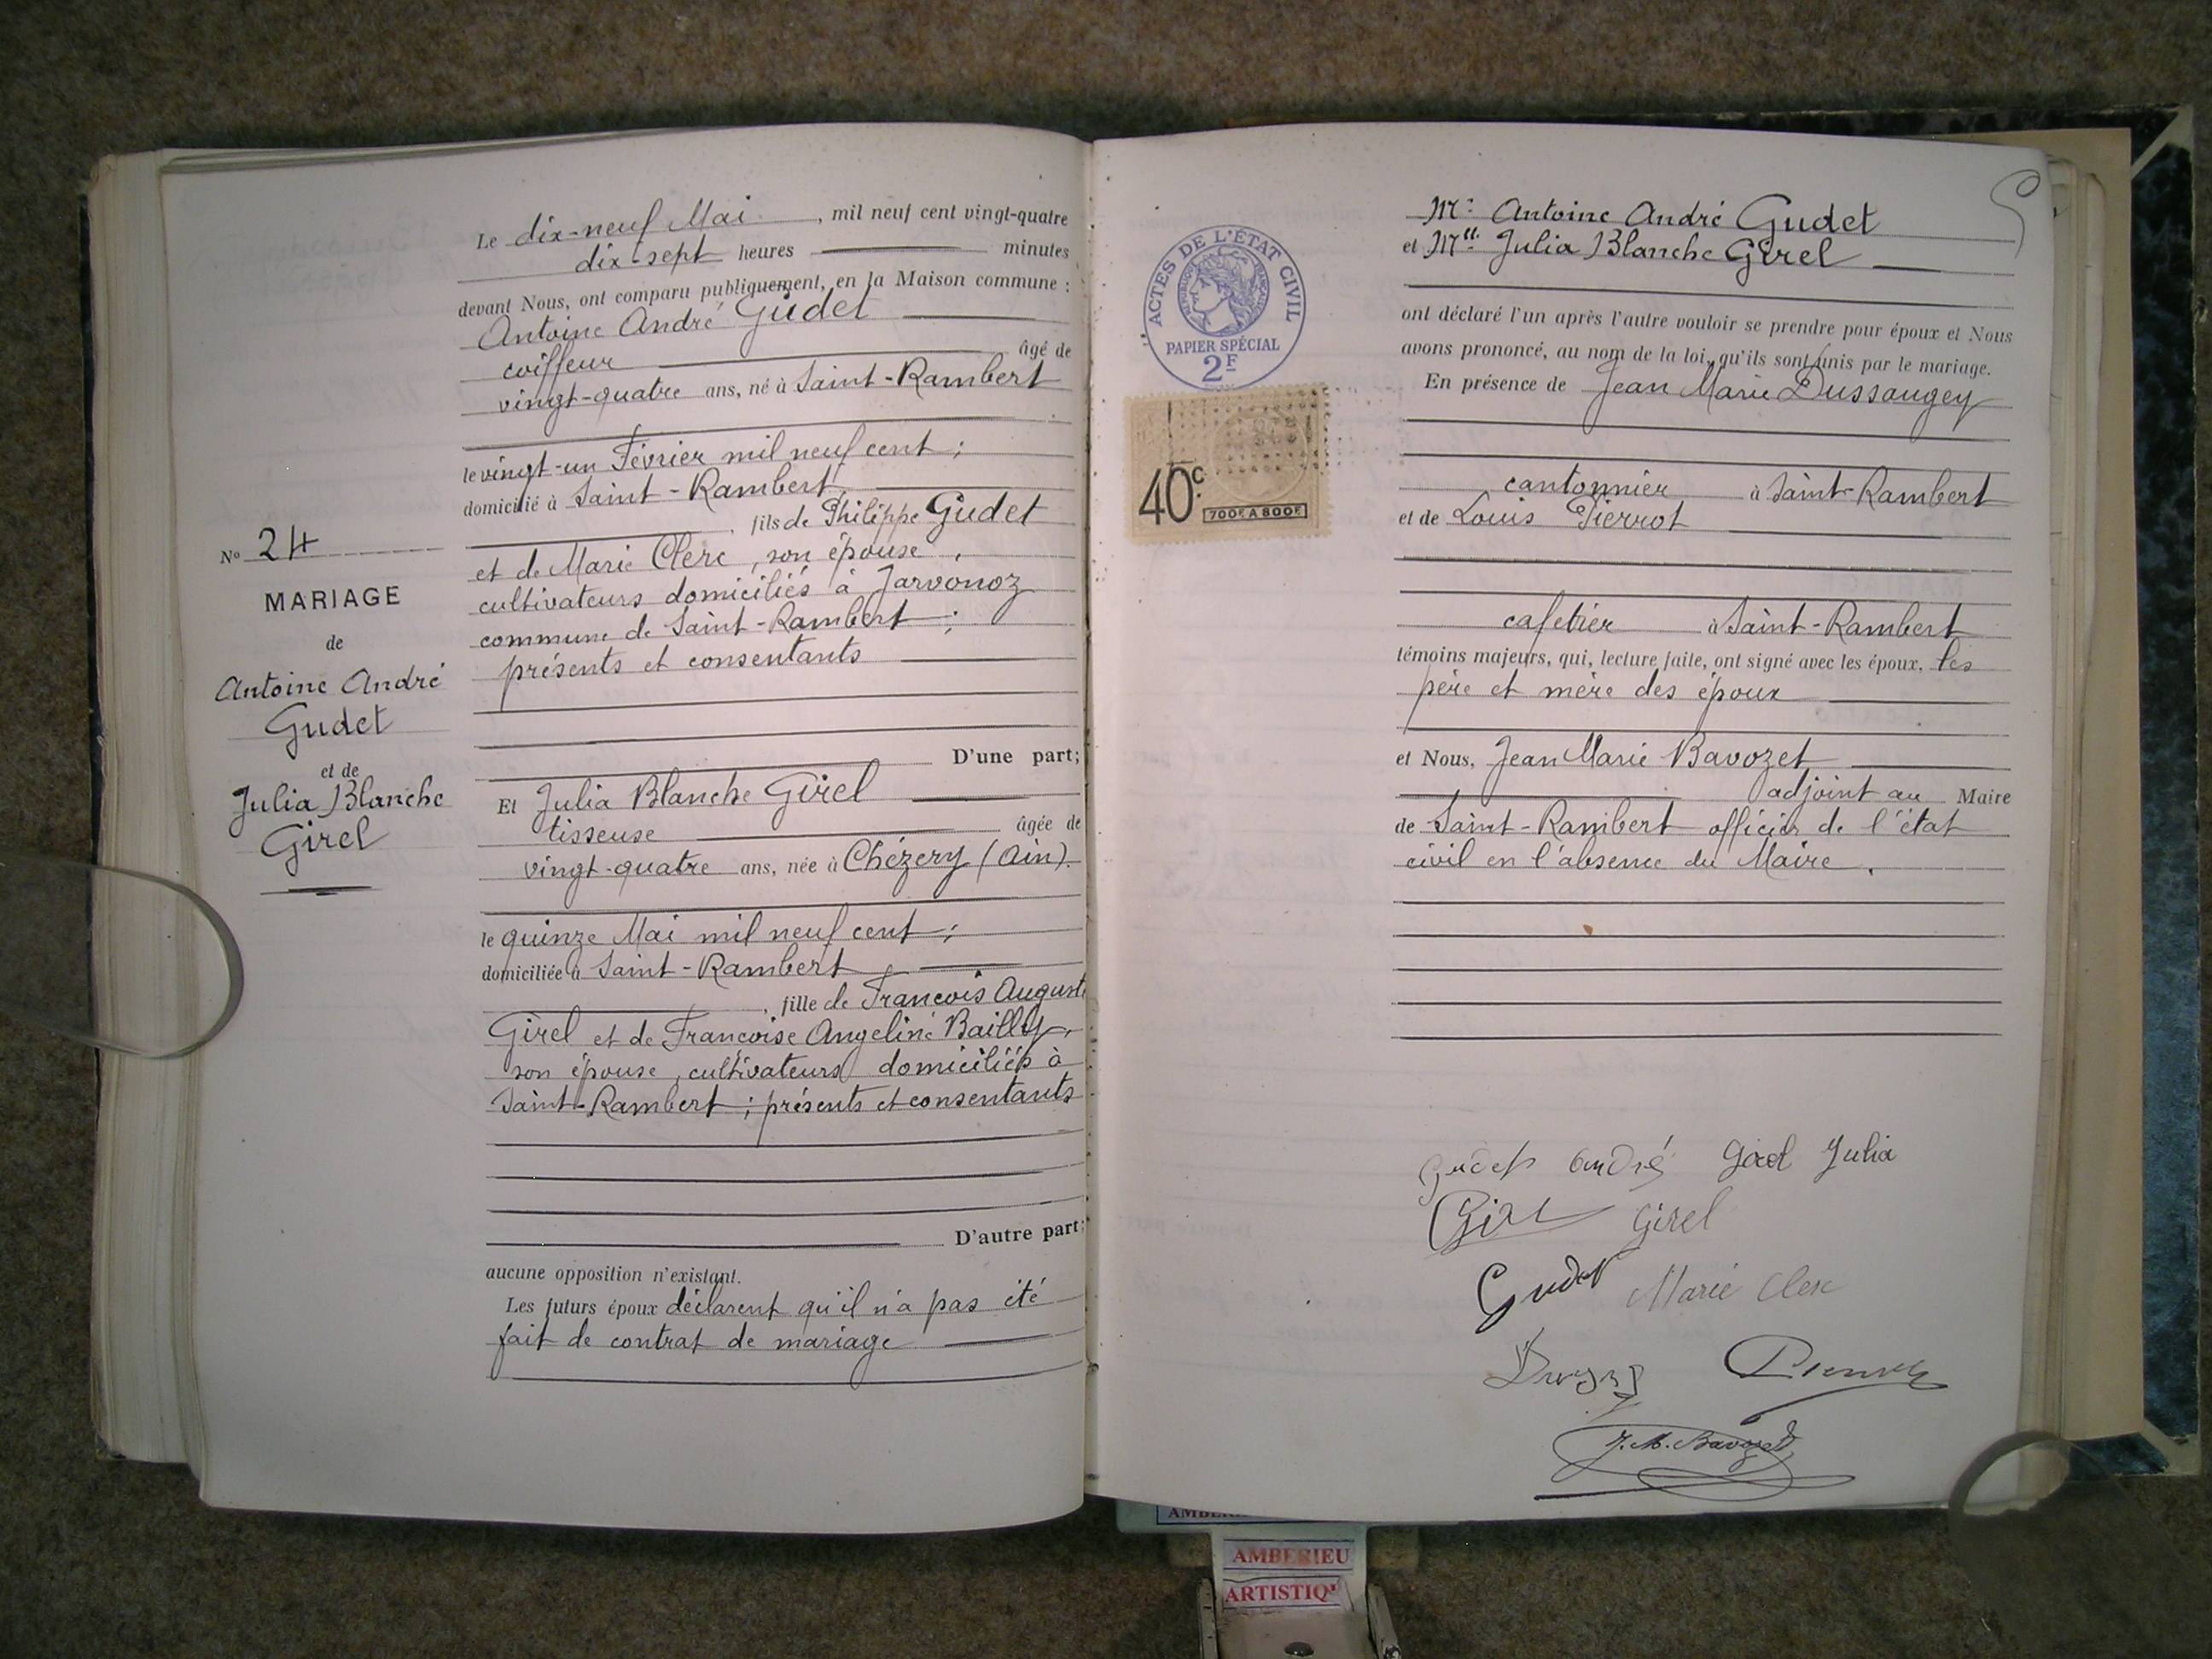 Le dix-neuf Mai, mil neuf cent vingt-quatre
dix-sept heures minutes
devant Nous, ont comparu publiquement, en la Maison commune :
Antoine André Gudet
coiffeur âgé de
vingt-quatre ans, né à Saint-Rambert
le vingt-un Février mil neuf cent ;
domicilié à Saint-Rambert
, fils de Philippe Gudet
et de Marie Clerc, son épouse,
cultivateurs domiciliés à Jarvonoz
commune de Saint-Rambert ;
présents et consentants
D'une part;
Et Julia Blanche Girel
tisseuse âgée de
vingt-quatre ans, née à Chézery (Ain).
le quinze Mai mil neuf cent ;
domiciliée à Saint-Rambert
, fille de François Auguste
Girel et de Françoise Angeline Bailly,
son épouse, cultivateurs domiciliés à
Saint-Rambert ; présents et consentants
D'autre part;
aucune opposition n'existant.
Les futurs époux déclarent qu'il n'a pas été
fait de contrat de mariage
N° 24
MARIAGE
de
Antoine André
Gudet
et de
Julia Blanche
Girel
ACTES DE L'ÉTAT CIVIL
RÉPUBLIQUE FRANÇAISE
PAPIER SPÉCIAL
2F
40c.
700F A 800F
Mr. Antoine André Gudet
et Mlle. Julia Blanche Girel
ont déclaré l'un après l'autre vouloir se prendre pour époux et Nous
avons prononcé, au nom de la loi, qu'ils sont unis par le mariage.
En présence de Jean Marie Dussaugey
cantonnier à Saint-Rambert
et de Louis Pierrot
cafetier à Saint-Rambert
témoins majeurs, qui, lecture faite, ont signé avec les époux, les
père et mère des époux
et Nous, Jean Marie Bavozet
adjoint au Maire
de Saint-Rambert officier de l'état
civil en l'absence du Maire.
Gudet André Girel Julia
Girel Girel
Gudet Marie Clerc
Pierrot
J.M. Bavozet
AMBERIEU
ARTISTIQ